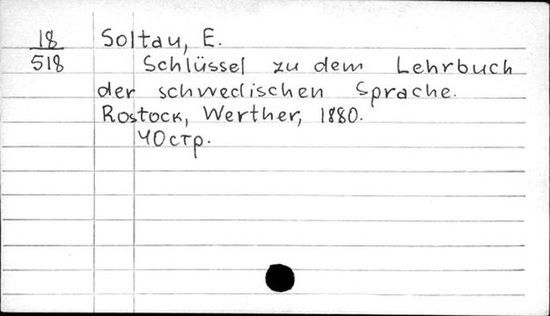 18 Soltau, E.
518 Schlüssel zu dem Lehrbuch
der schwedischen Sprache.
Rostock, Werther, 1880.
40 стр.